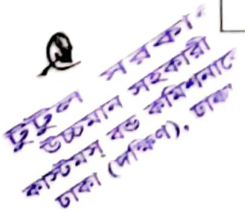 টুটুল সরকার
উচ্চমান সহকারী
কাস্টমস্ বন্ড কমিশনারেট
ঢাকা (দক্ষিণ), ঢাকা